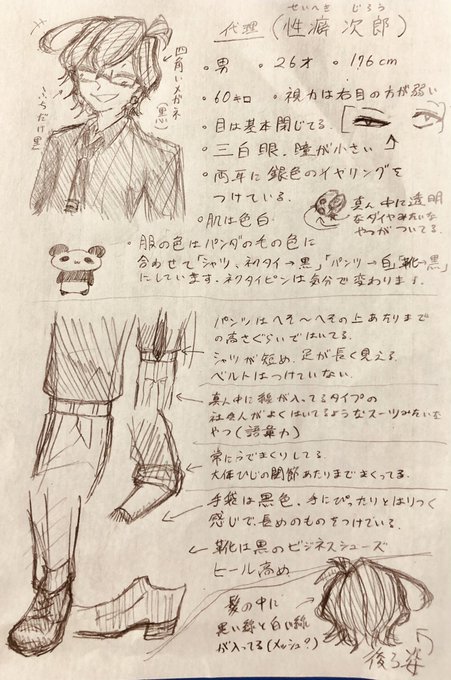 せいへき じろう
代理(性癖次郎)
・男 ・26才 ・176cm
・60キロ ・視力は右目の方が弱い
・目は基本閉じてる。
・三白眼、瞳が小さい
・両耳に銀色のイヤリングを
つけている。
・肌は色白
四角いメガネ
(黒)
ふちだけ黒
真ん中に透明
なダイヤみたいな
やつがついてる。
・服の色はパンダのもの色に
合わせて「シャツ、ネクタイ→黒」「パンツ→白」「靴→黒」
にしています。ネクタイピンは気分で変わります。
パンツはへそ〜へその上あたりまで
の高さぐらいではいてる。
シャツが短め、足が長く見える。
ベルトはつけていない。
真ん中に線が入ってるタイプの
社会人がよくはいてるようなスーツみたいな
やつ(語彙力)
常にうでまくりしてる。
大体ひじの関節あたりまでまくってる。
手袋は黒色、手にぴったりとはりつく
感じで、長めのものをつけている。
靴は黒のビジネスシューズ
ヒール高め
髪の中に
黒い線と白い線
が入ってる(メッシュ?)
後ろ姿